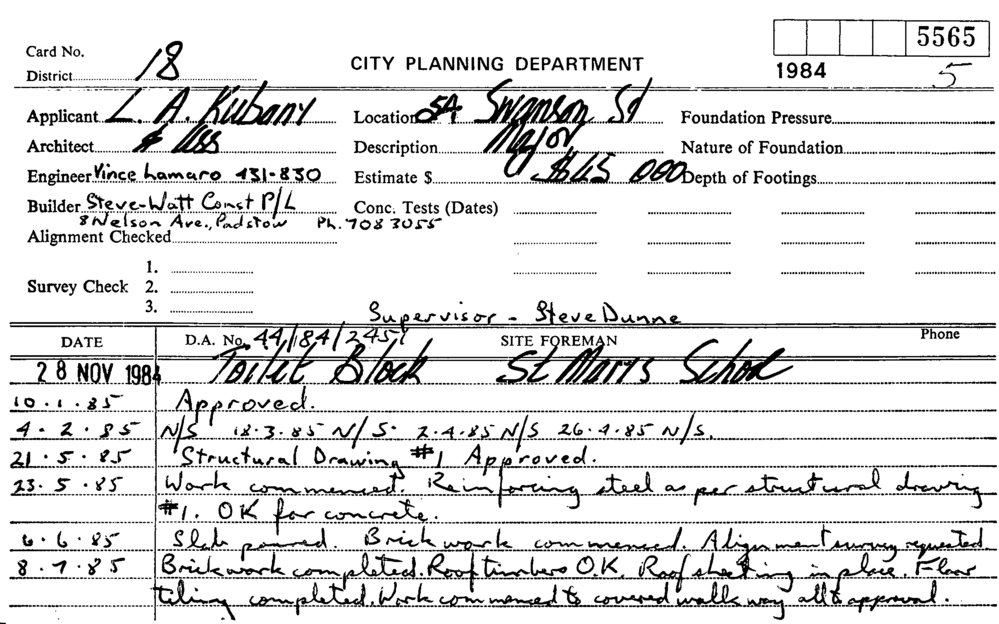 5565
Card No.
District 18
CITY PLANNING DEPARTMENT
1984 5
Applicant L. A. Kubany Location 5A Swanson St Foundation Pressure
Architect & Ass Description Major Nature of Foundation
Engineer Vince Lamaro 431-830 Estimate $ $45 000 Depth of Footings
Builder Steve-Watt Const P/L Conc. Tests (Dates)
8 Nelson Ave., Padstow Ph. 708 3055
Alignment Checked
1.
Survey Check 2.
3.
Supervisor - Steve Dunne
DATE D.A. No. 44/84/2451 SITE FOREMAN Phone
28 NOV 1984 Toilet Block St Marys School
10.1.85 Approved.
4.2.85 N/S 18.3.85 N/S. 2.4.85 N/S 26.4.85 N/S.
21.5.85 Structural Drawing #1 Approved.
23.5.85 Work commenced. Reinforcing steel as per structural drawing
#1. OK for concrete.
6.6.85 Slab poured. Brickwork commenced. Alignment survey requested
8.7.85 Brickwork completed. Roof timbers O.K. Roof sheeting in place. Floor
tiling completed. Work commenced to covered walkway all to approval.